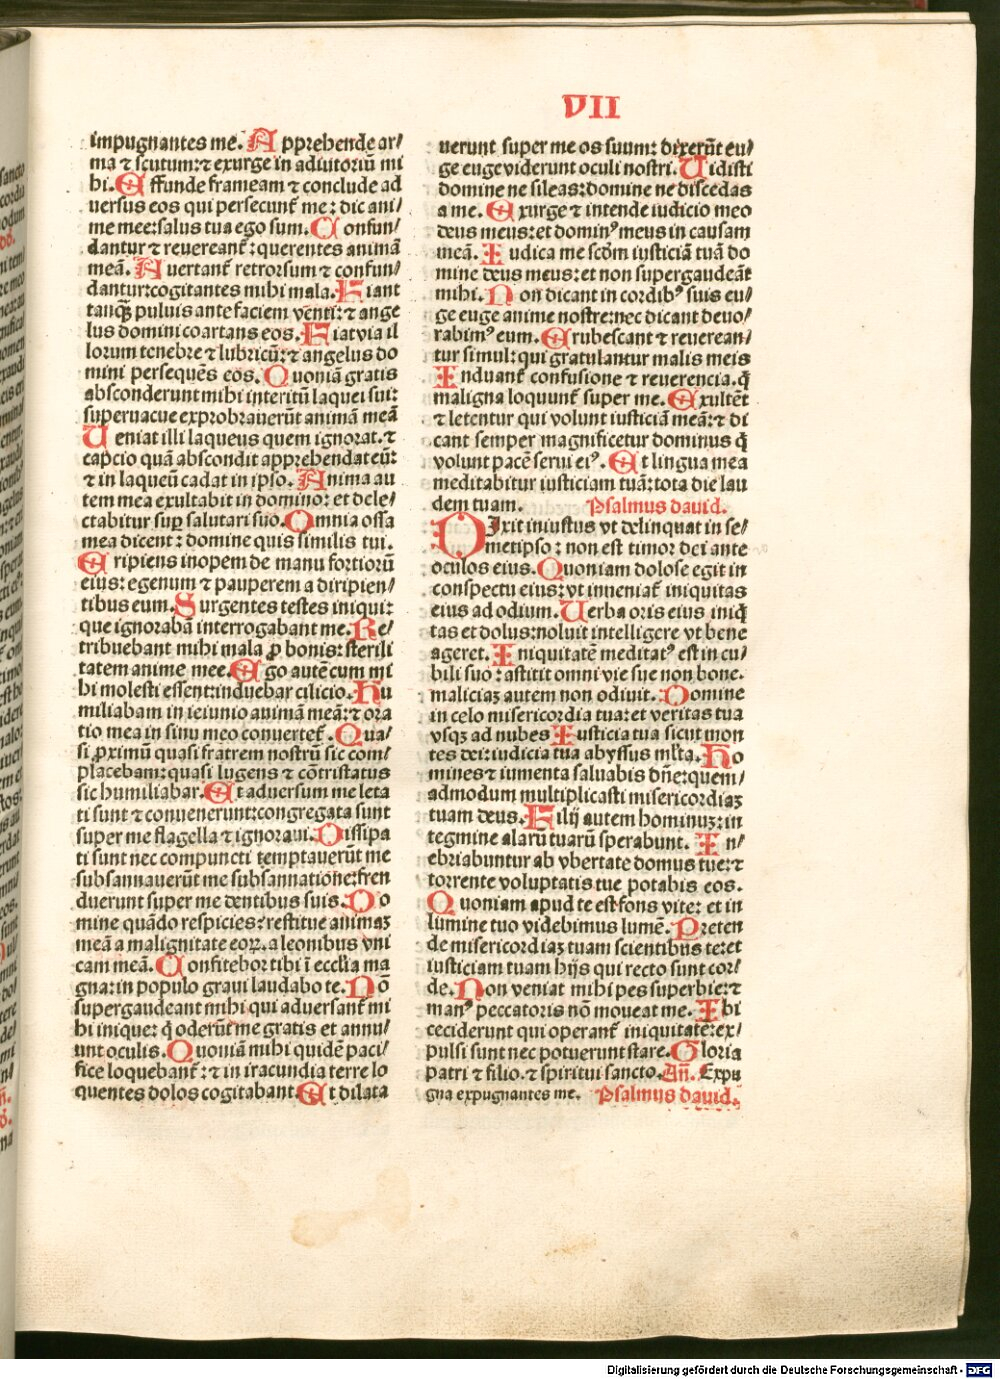 VII
impugnantes me. Apprehende ar/
ma ⁊ scutum: ⁊ exurge in adiutoriū mi
hi. Effunde frameam ⁊ conclude ad
uersus eos qui persecunt̄ me: dic ani/
me mee: salus tua ego sum. Confun/
dantur ⁊ reuereant̄: querentes animā
meā. Auertant̄ retrorsum ⁊ confun/
dantur: cogitantes mihi mala. Fiant
tanq̄ puluis ante faciem venti: ⁊ ange
lus domini coartans eos. Fiat via il
lorum tenebre ⁊ lubricū: ⁊ angelus do
mini persequēs eos. Quoniā gratis
absconderunt mihi interitū laquei sui:
superuacue exprobrauerūt animā meā
Veniat illi laqueus quem ignorat. ⁊
capcio quā abscondit apprehendat eū:
⁊ in laqueū cadat in ipso. Anima au
tem mea exultabit in domino: et dele/
ctabitur suꝑ salutari suo. Omnia ossa
mea dicent: domine quis similis tui.
Eripiens inopem de manu fortiorū
eius: egenum ⁊ pauperem a diripien/
tibus eum. Surgentes testes iniqui:
que ignorabā interrogabant me. Re/
tribuebant mihi mala ꝓ bonis: sterili
tatem anime mee. Ego autē cum mi
hi molesti essent: induebar cilicio. Hu
miliabam in ieiunio animā meā: ⁊ ora
tio mea in sinu meo conuertet̄. Qua/
si ꝓximū quasi fratrem nostrū sic com/
placebam: quasi lugens ⁊ cōtristatus
sic humiliabar. Et aduersum me leta
ti sunt ⁊ conuenerunt: congregata sunt
super me flagella ⁊ ignoraui. Dissipa
ti sunt nec compuncti temptauerūt me
subsannauerūt me subsannatione: fren
duerunt super me dentibus suis. Do
mine quādo respicies: restitue animaꝫ
meā a malignitate eoꝝ. a leonibus vni
cam meā. Confitebor tibi ī ecclīa ma
gna: in populo graui laudabo te. Nō
supergaudeant mihi qui aduersant̄ mi
hi inique: q̄ oderūt me gratis et annu/
unt oculis. Quoniā mihi quidē paci/
fice loquebant̄: ⁊ in iracundia terre lo
quentes dolos cogitabant. Et dilata
uerunt super me os suum: dixerūt eu/
ge euge viderunt oculi nostri. Vidisti
domine ne sileas: domine ne discedas
a me. Exurge ⁊ intende iudicio meo
deus meus: et dominꝰ meus in causam
meā. Iudica me scd̄m iusticiā tuā do
mine deus meus: et non supergaudeāt
mihi. Non dicant in cordibꝰ suis eu/
ge euge anime nostre: nec dicant deuo/
rabimꝰ eum. Erubescant ⁊ reuerean/
tur simul: qui gratulantur malis meis
Induant̄ confusione ⁊ reuerencia. q̄
maligna loquunt̄ super me. Exultēt
⁊ letentur qui volunt iusticiā meā: ⁊ di
cant semper magnificetur dominus q̄
volunt pacē serui eiꝰ. Et lingua mea
meditabitur iusticiam tuā: tota die lau
dem tuam. Psalmus dauid.
Dixit iniustus vt delinquat in se/
metipso: non est timor dei ante
oculos eius. Quoniam dolose egit in
conspectu eius: vt inueniat̄ iniquitas
eius ad odium. Verba oris eius iniq̄
tas et dolus: noluit intelligere vt bene
ageret. Iniquitatē meditatꝰ est in cu/
bili suo: astitit omni vie sue non bone.
maliciaꝫ autem non odiuit. Domine
in celo misericordia tua: et veritas tua
vsqꝫ ad nubes Iusticia tua sicut mon
tes dei: iudicia tua abyssus ml̄ta. Ho
mines ⁊ iumenta saluabis dn̄e: quem/
admodum multiplicasti misericordiaꝫ
tuam deus. Filij autem hominuꝫ: in
tegmine alarū tuarū sperabunt. In/
ebriabuntur ab vbertate domus tue: ⁊
torrente voluptatis tue potabis eos.
Quoniam apud te est fons vite: et in
lumine tuo videbimus lumē. Preten
de misericordiaꝫ tuam scientibus te: et
iusticiam tuam hijs qui recto sunt cor/
de. Non veniat mihi pes superbie: ⁊
manꝰ peccatoris nō moueat me. Ibi
ceciderunt qui operant̄ iniquitatē: ex/
pulsi sunt nec potuerunt stare. Gloria
patri ⁊ filio. ⁊ spiritui sancto. Añ. Expu
gna expugnantes me. Psalmus dauid.
Digitalisierung gefördert durch die Deutsche Forschungsgemeinschaft - DFG